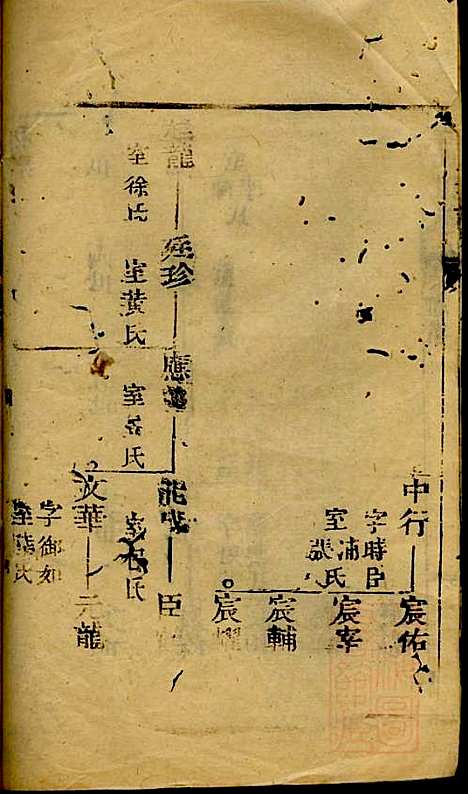 中行
字時臣
室浦
張氏
宸佑
宸宰
宸輔
宸
龍
室徐氏
廷珍
室黃氏
應
室呂氏
臣
室石氏
文華
字御如
室葉氏
元龍